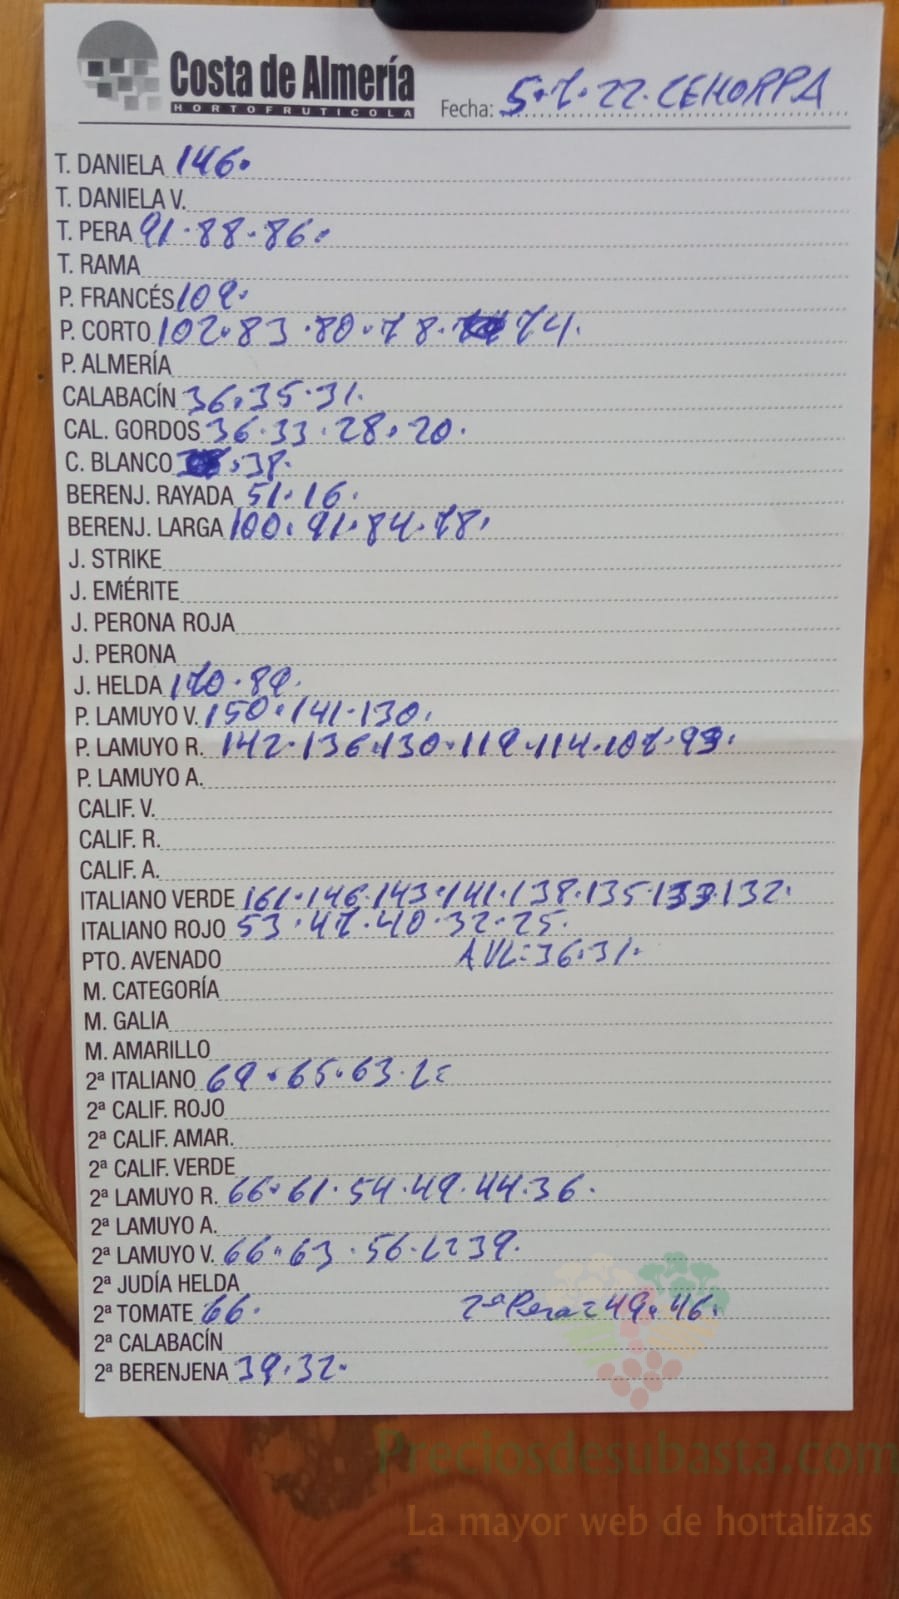 Costa de Almería
HORTOFRUTICOLA
Fecha: 5.7.22. CEHORPA
T. DANIELA 146.
T. DANIELA V.
T. PERA 91.88.86.
T. RAMA
P. FRANCÉS 109.
P. CORTO 102.83.80.78. 74.
P. ALMERÍA
CALABACÍN 36.35.31.
CAL. GORDOS 36.33.28.20.
C. BLANCO .38.
BERENJ. RAYADA 51.16.
BERENJ. LARGA 100.91.84.78.
J. STRIKE
J. EMÉRITE
J. PERONA ROJA
J. PERONA
J. HELDA 170.89.
P. LAMUYO V. 150.141.130.
P. LAMUYO R. 142.136.130.119.114.107.93.
P. LAMUYO A.
CALIF. V.
CALIF. R.
CALIF. A.
ITALIANO VERDE 161.146.143.141.138.135.133.132.
ITALIANO ROJO 53.47.40.32.25.
PTO. AVENADO AVL=36.31.
M. CATEGORÍA
M. GALIA
M. AMARILLO
2ª ITALIANO 69.65.63.
2ª CALIF. ROJO
2ª CALIF. AMAR.
2ª CALIF. VERDE
2ª LAMUYO R. 66.61.54.49.44.36.
2ª LAMUYO A.
2ª LAMUYO V. 66.63.56. 39.
2ª JUDÍA HELDA
2ª TOMATE 66. 2ª Pera=49.46.
2ª CALABACÍN
2ª BERENJENA 39.32.
Preciosdesubasta.com
La mayor web de hortalizas